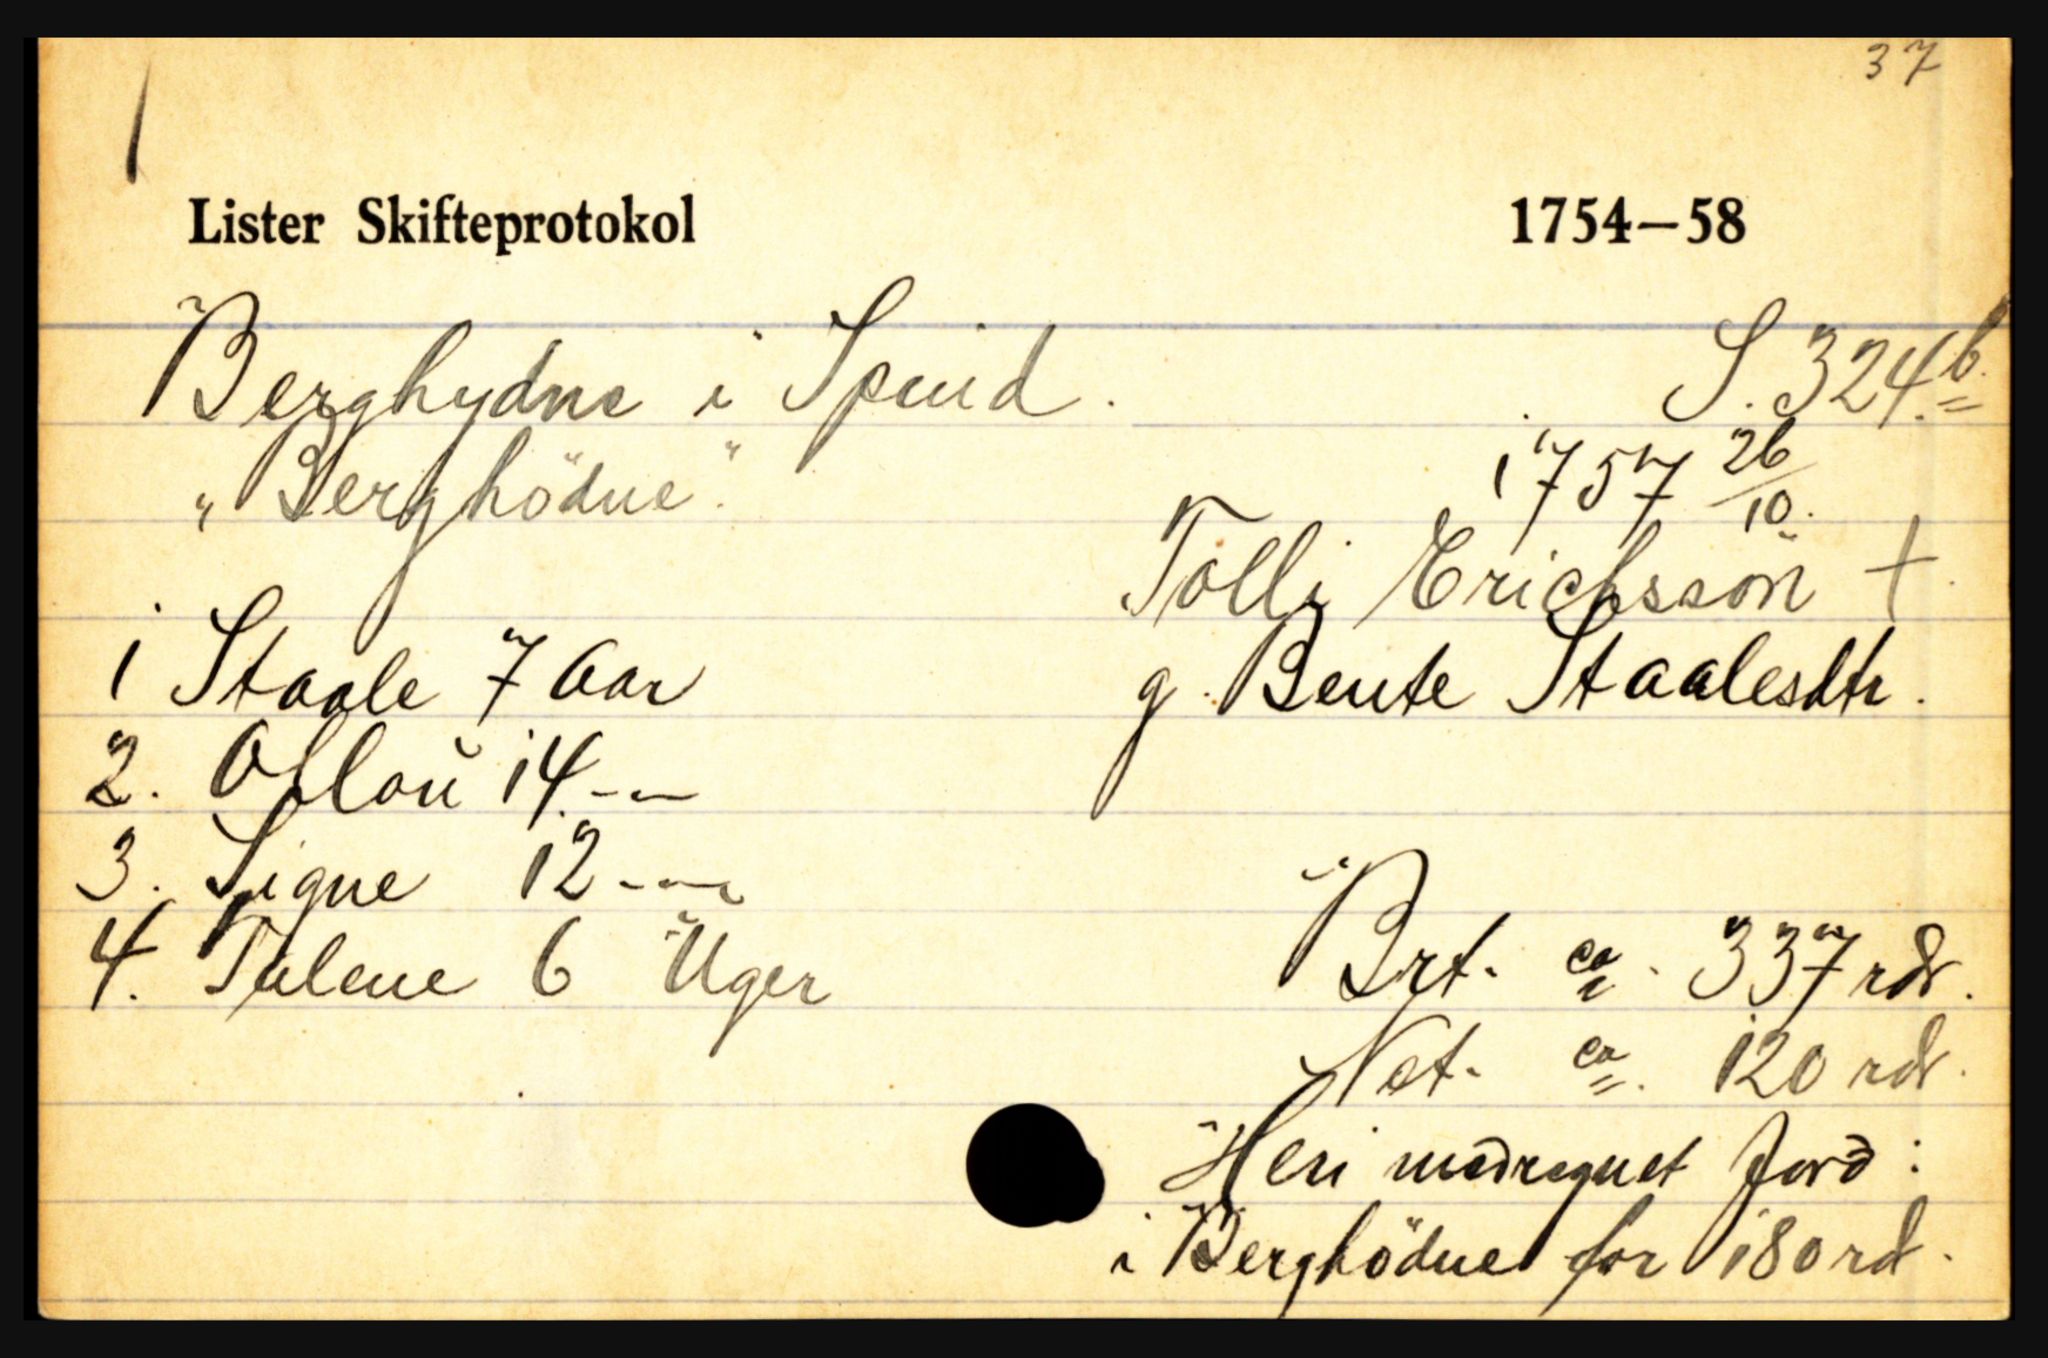 37
Lister Skifteprotokol 1754—58
Berghydne i Spind. S. 324b.
„Berghödne". 1757 26/10.
Tolli Erichssön †.
1 Staale 7 Aar g. Bente Staalesdtr.
2. Asloú 14 -—
3. Signe 12 -—
4. Talene 6 Uger Brt. ca. 337 rdr.
Net. ca. 120 rdr.
Heri medregnet Jord:
i Berghödne for 180 rd.